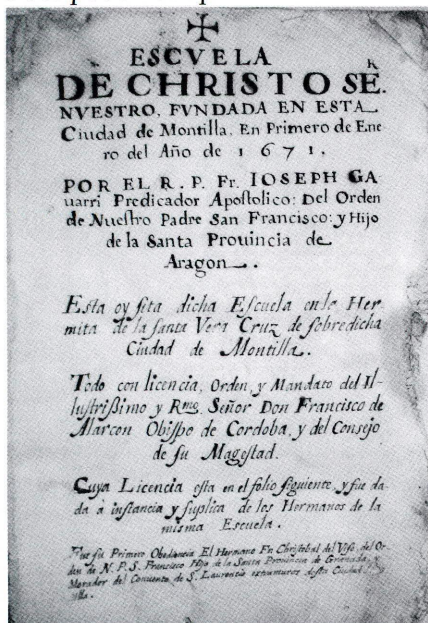 ESCVELA
DE CHRISTO SE. R
NVESTRO, FVNDADA EN ESTA
Ciudad de Montilla. En Primero de Ene
ro del Año de 1671.
POR EL R. P. Fr. IOSEPH GA
uarri Predicador Apostolico: Del Orden
de Nuestro Padre San Francisco: y Hijo
de la Santa Prouincia de
Aragon.
Esta oy sita dicha Escuela en le Her
mita de la santa Vera Cruz de sobredicha
Ciudad de Montilla.
Todo con licencia, Orden, y Mandato del Il
lustrissimo y Rmo. Señor Don Francisco de
Alarcon Obispo de Cordoba, y del Consejo
de su Magestad.
Cuya Licencia esta en el folio siguiente, y fue da
da à instancia y suplica de los Hermanos de la
misma Escuela.
Fue su Primero Obediencia El Hermano Fr. Christobal del Viso, del Or
den de N. P. S. Francisco Hijo de la Santa Prouincia de Granada, y
Morador del Conuento de S. Laurencio extramuros desta Ciudad
villa.